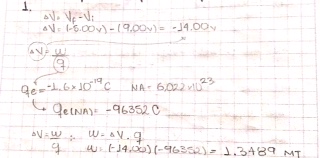 1.
ΔV = Vf - Vi
ΔV = (-5.00v) - (9.00v) = -14.00v
ΔV = w/q
qe = -1.6x10^-19 C NA = 6,022x10^23
qe(NA) = -96352 C
ΔV = w/q ∴ w = ΔV . q
w = (-14,00)(-96352) = 1.3489 MJ